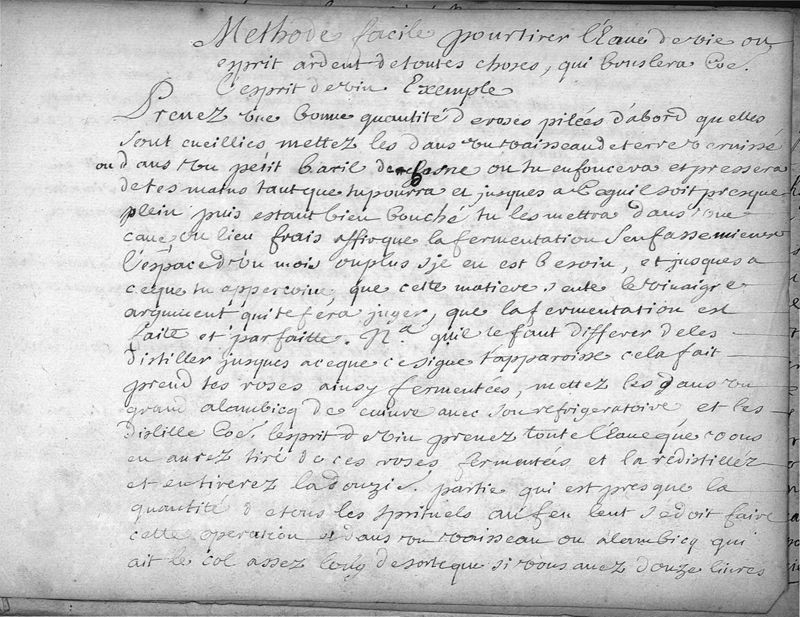 Methode facile pour tirer l'Eaue de vie ou
esprit ardent de toutes choses, qui bruslera Coe.
l'esprit de vin Exemple
Prenez une bonne quantité de roses pilées d'abord qu'elles
sont cueillies mettez les dans un vaisseau de terre vernissé
ou dans un petit baril de chesne ou tu enfoncera et pressera
de tes mains tant que tu pourra et jusques a ce quil soit presque
plein puis estant bien bouché tu les mettra dans une
cave, ou lieu frais affin que la fermentation s'en fasse mieux
l'espace d'un mois ou plus s'je en est besoin, et jusques a
ce que tu appercoive, que cette matiere sente le vinaigre
argument qui te fera juger, que la fermentation est
faite et parfaitte. Na. qu'il te faut differer de les
distiller jusques a ce que ce signe t'apparoisse cela fait
prend tes roses ainsy fermentées, mettez les dans un
grand alambicq de cuivre avec son refrigeratoire et les
distille Coe. l'esprit de vin prenez toute l'Eaue que vous
en aurez tiré de ces roses fermentées et la redistillez
et en tirerez la douzie. partie qui est presque la
quantité de tous les spirituels au feu lent se doit faire
cette operation dans un vaisseau ou alambicq qui
ait le col assez long de sorte que si vous avez douze livres